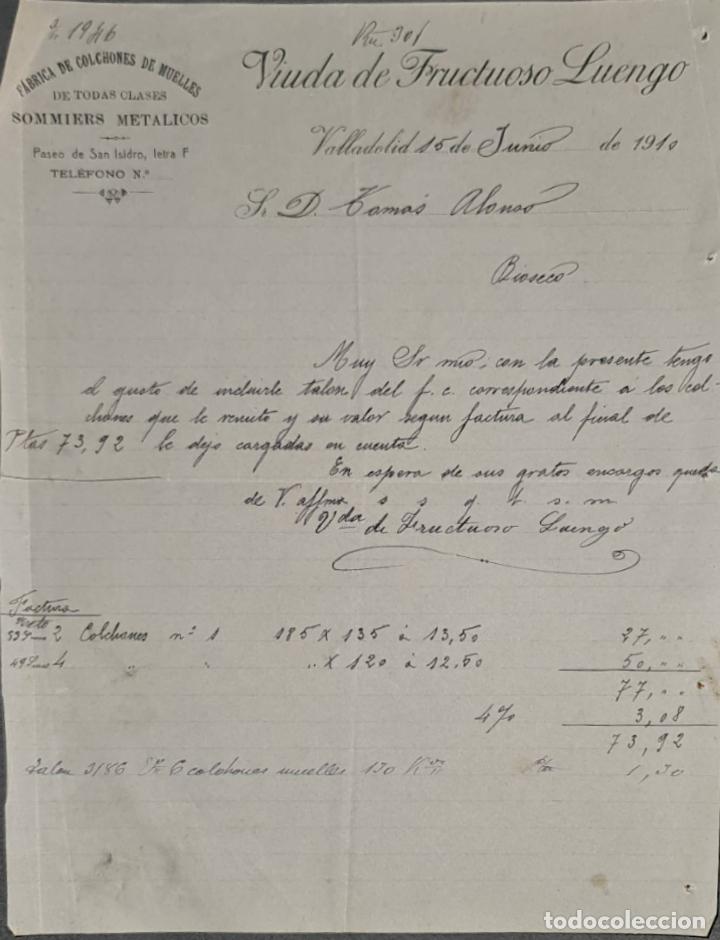 1946
FÁBRICA DE COLCHONES DE MUELLES
DE TODAS CLASES
SOMMIERS METALICOS
Paseo de San Isidro, letra F
TELÉFONO N.º
Viuda de Fructuoso Luengo
Valladolid 15 de Junio de 1910
Sr. D. Tomás Alonso
Rioseco
Muy Sr mio, con la presente tengo
el gusto de incluirle talon del f.c. correspondiente á los col-
chones que le remito y su valor segun factura al final de
Ptas 73,92 le dejo cargadas en cuenta.
En espera de sus gratos encargos queda
de V. affma s s q. b. s. m
Vda de Fructuoso Luengo
Factura
2 Colchones nº 1 185 X 135 á 13,50 27, " "
4 " " " X 120 á 12,50 50, " "
77, " "
4% 3,08
73,92
Talon 3186 6 colchones muelles 130 Ks 1,30
todocoleccion